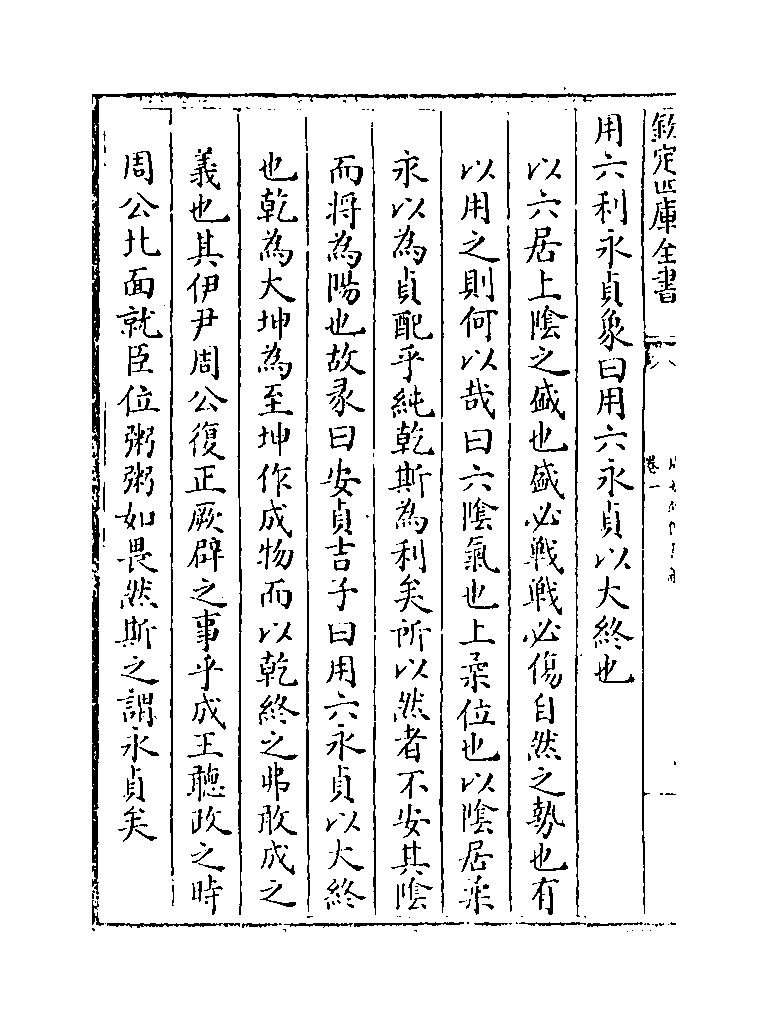 欽定四庫全書
卷一
用六利永貞象曰用六永貞以大終也
以六居上陰之盛也盛必戰戰必傷自然之勢也有
以用之則何以哉曰六陰氣也上柔位也以陰居柔
永以為貞配乎純乾斯為利矣所以然者不安其陰
而將為陽也故彖曰安貞吉子曰用六永貞以大終
也乾為大坤為至坤作成物而以乾終之弗敢成之
義也其伊尹周公復正厥辟之事乎成王聽政之時
周公北面就臣位粥粥如畏然斯之謂永貞矣